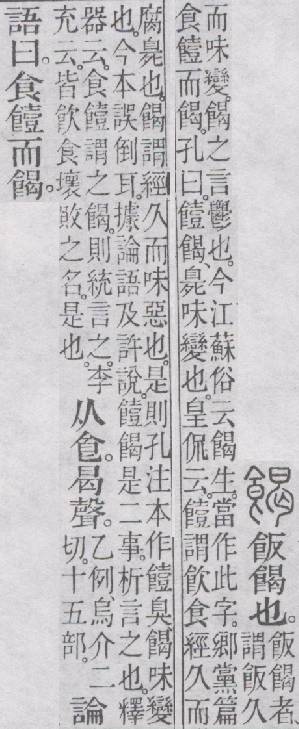 餲飯餲也。
飯餲者、
謂飯久
而味變。餲之言鬱也。今江蘇俗云餲生。當作此字。鄉黨篇
食饐而餲。孔曰。饐餲、臰味變也。皇侃云。饐謂飮食經久而
腐臰也。餲謂經久而味惡也。是則孔注本作饐臭餲味變
也。今本誤倒耳。據論語及許說。饐餲是二事。析言之也。釋
器云。食饐謂之餲。則統言之。李
充云。皆飮食壞敗之名。是也。
从食。曷聲。
乙例烏介二
切。十五部。
論
語曰。食饐而餲。